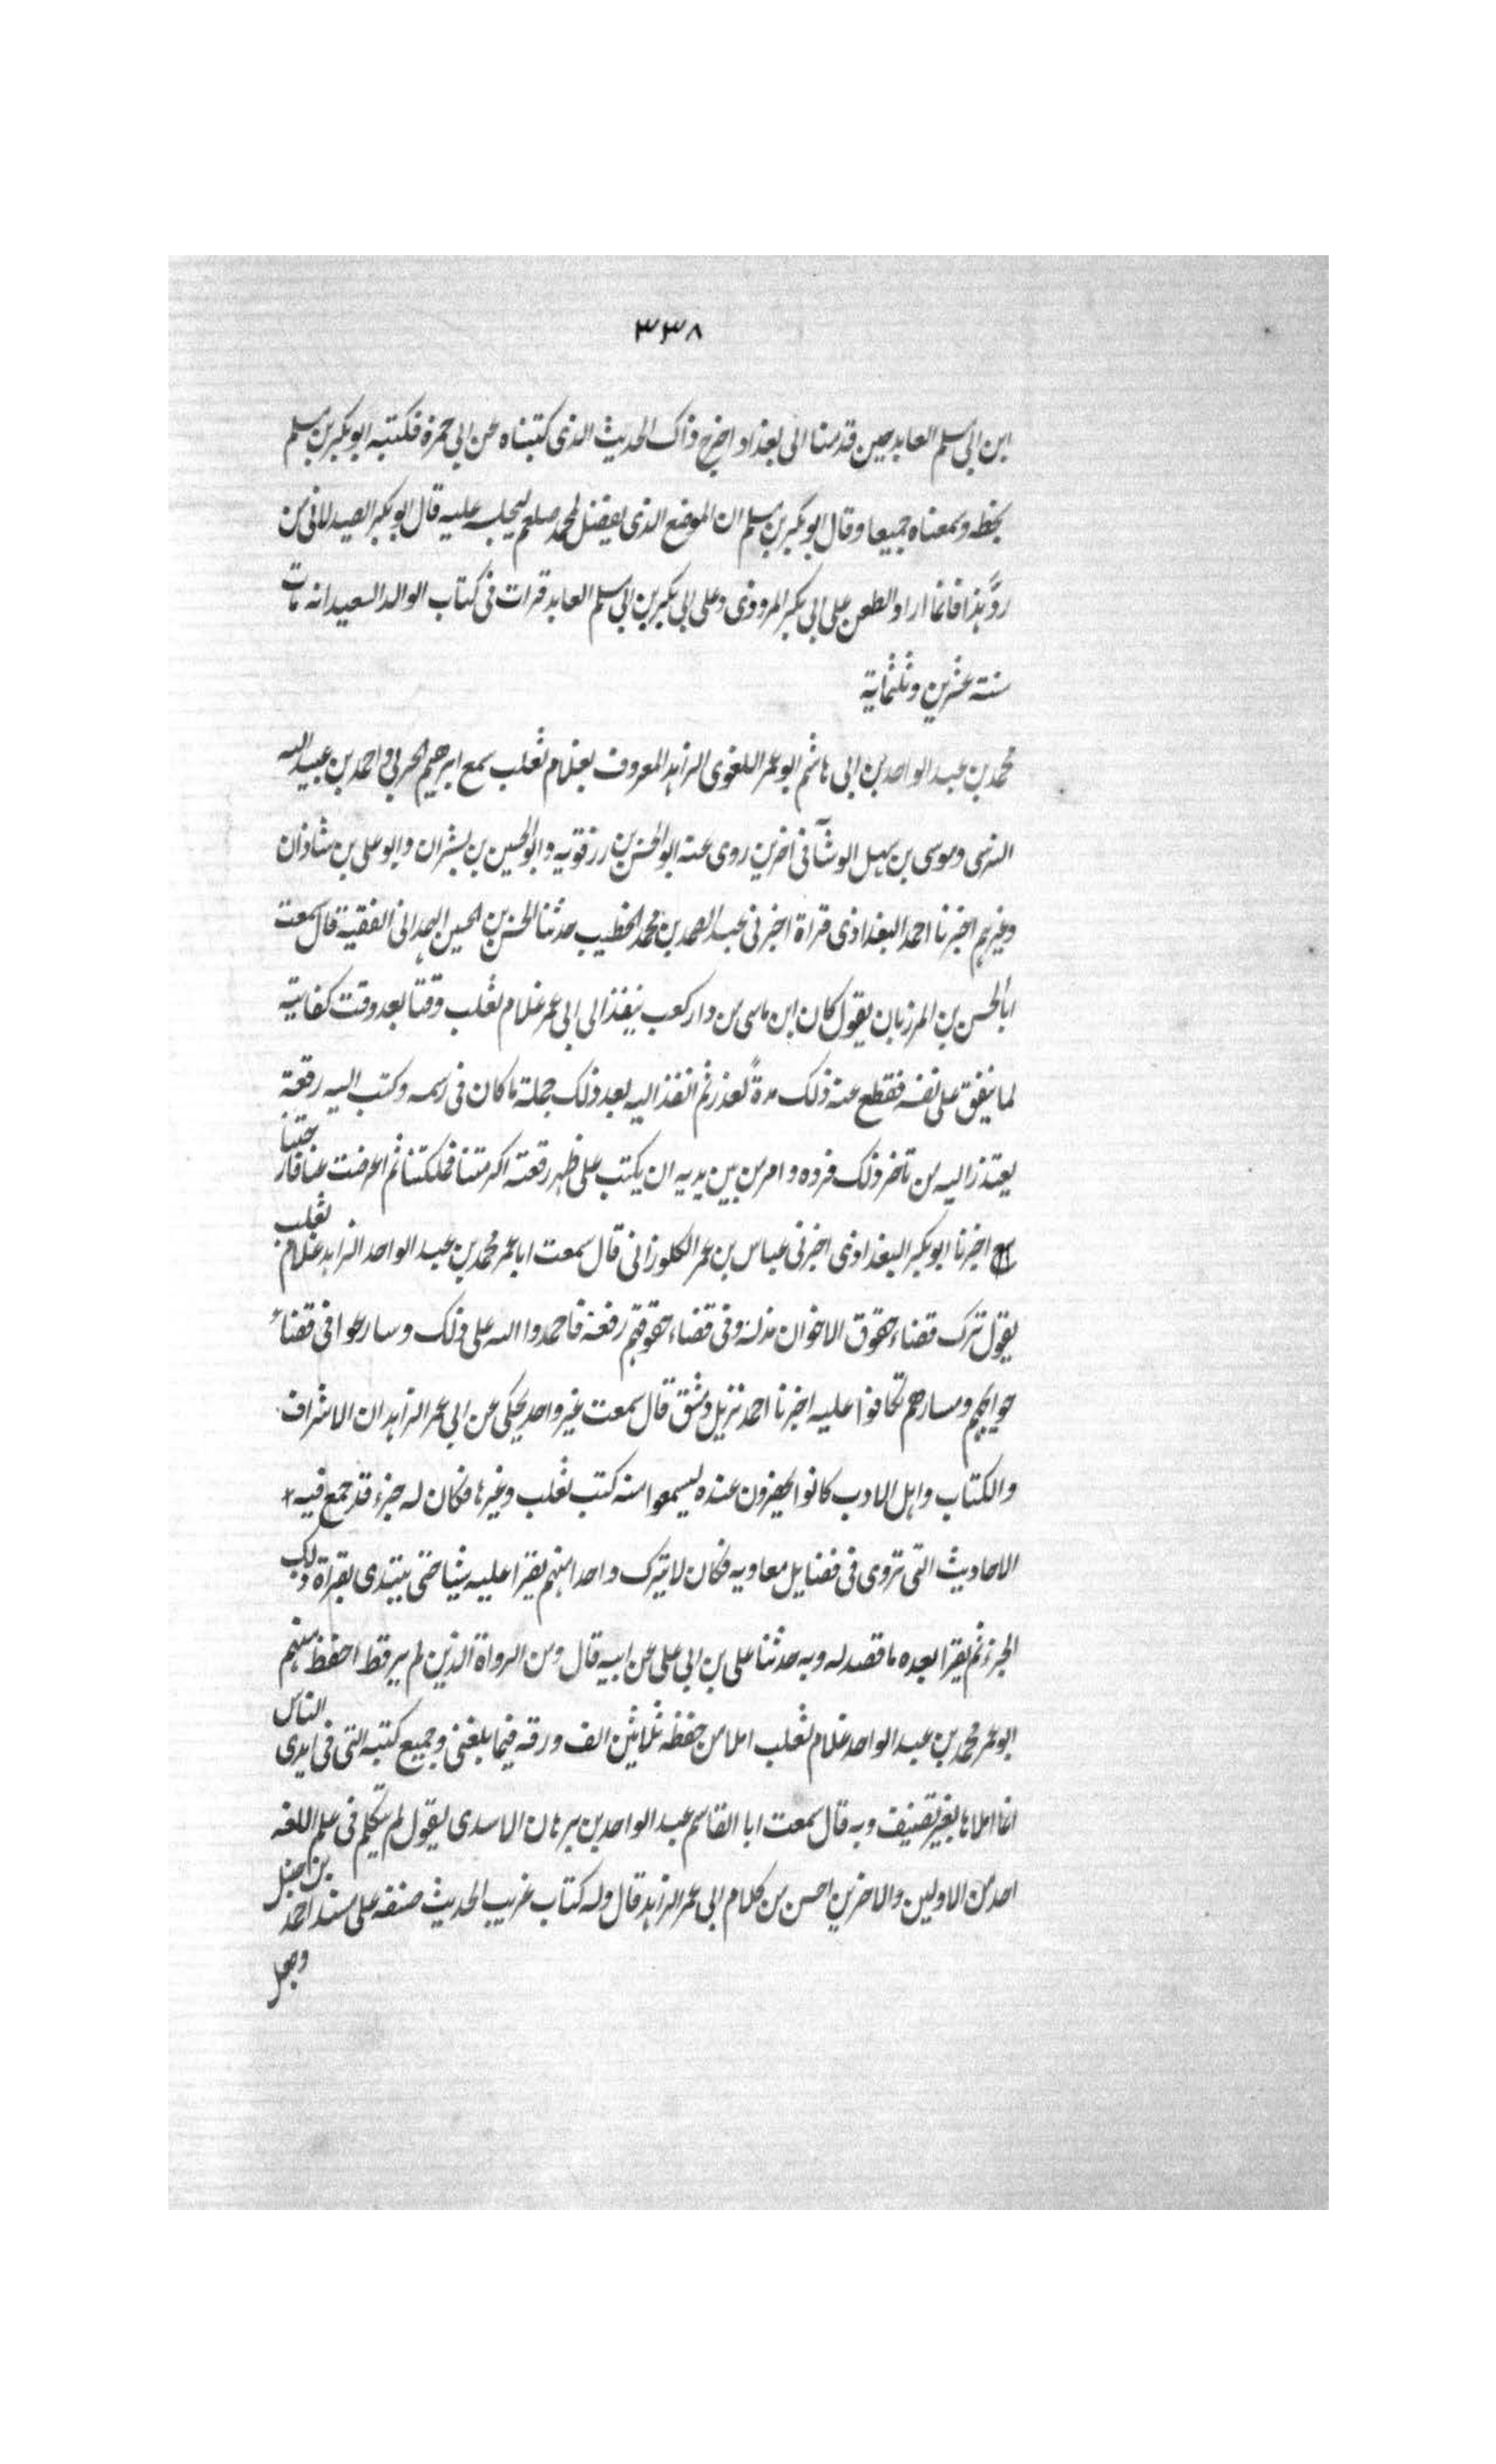 ٣٣٨
ابن ابى مسلم العابد حين قدمنا الى بغداد اخرج ذاك الحديث الذى كتبناه عن ابى حمزة فكتبه ابو بكر بن مسلم
بخطه وسمعناه جميعا وقال ابو بكر بن مسلم ان الموضع الذى يفضل لمحمد صلعم ليجلسه عليه قال ابو بكر الصيدلانى من
ردّ هذا فانما اراد الطعن على ابى بكر المروذى وعلى ابى بكر بن ابى مسلم العابد قرات فى كتاب الوالد السعيد انه مات
سنة عشرين وثلثماية
محمد بن عبد الواحد بن ابى هاشم ابو عمر اللغوى الزاهد المعروف بغلام ثعلب سمع ابرهيم الحربى واحمد بن عبيد الله
النرسى وموسى بن سهل الوشآ فى اخرين روى عنه ابو الحسن بن رزقويه وابو الحسين بن بشران وابو على بن شاذان
وغيرهم اخبرنا احمد البغدادى قراة اخبرنى عبد الصمد بن محمد الخطيب حدثنا الحسن بن الحسين الهمدانى الفقيه قال سمعت
ابا الحسن بن المرزبان يقول كان ابن ماسى من دار كعب ينفذ الى ابى عمر غلام ثعلب وقتا بعد وقت كفايته
لما ينفق على نفسه فقطع عنه ذلك مدةً لعذر ثم انفذ اليه بعد ذلك جملة ما كان فى رسمه وكتب اليه رقعة
يعتذر اليه من تاخر ذلك فرده وامر من بين يديه ان يكتب على ظهر رقعته اكرمتنا فملكتنا ثم اعرضت عنا فارحتنا
اخبرنا ابو بكر البغدادى اخبرنى عباس بن عمر الكلوزانى قال سمعت ابا عمر محمد بن عبد الواحد الزاهد غلام ثعلب
يقول ترك قضاء حقوق الاخوان مذلة وفى قضاء حقوقهم رفعة فاحمدوا الله على ذلك وسارعوا فى قضاء
حوايجهم ومسارهم تكافوا عليه اخبرنا احمد نزيل دمشق قال سمعت غير واحد يحكى عن ابى عمر الزاهد ان الاشراف
والكتاب واهل الادب كانوا يحضرون عنده ليسمعوا منه كتب ثعلب وغيرها فكان له جزء قد جمع فيه
الاحاديث التى تروى فى فضايل معاويه فكان لا يترك واحدا منهم يقرا عليه شيا حتى يبتدى بقراة ذلك
الجزء ثم يقرا بعده ما قصد له وبه حدثنا على بن ابى على عن ابيه قال ومن الرواة الذين لم ير قط احفظ منهم
ابو عمر محمد بن عبد الواحد غلام ثعلب املا من حفظه ثلاثين الف ورقه فيما بلغنى وجميع كتبه التى فى ايدى الناس
انما املاها بغير تصنيف وبه قال سمعت ابا القاسم عبد الواحد بن برهان الاسدى يقول لم يتكلم فى علم اللغه
احد من الاولين والاخرين احسن من كلام ابى عمر الزاهد قال وله كتاب غريب الحديث صنفه على مسند احمد بن حنبل
وجعل